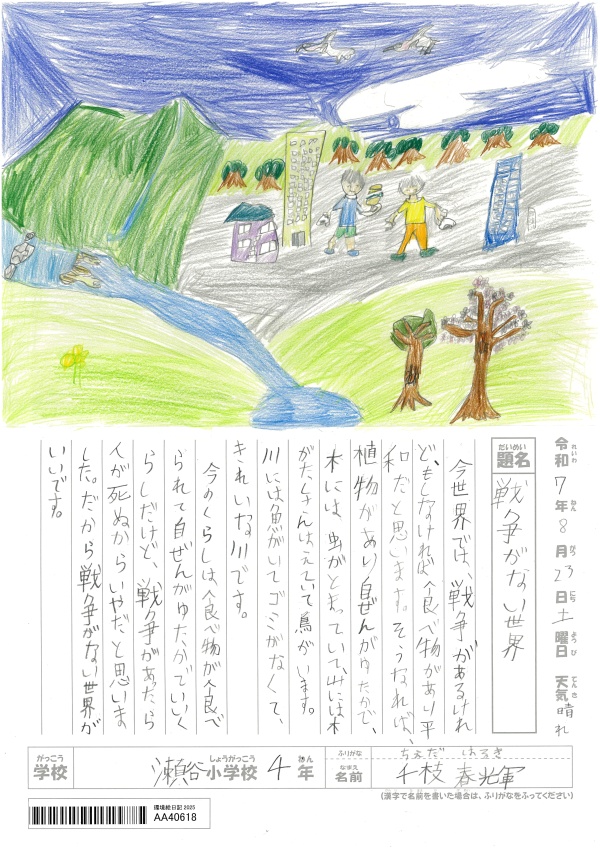 令和7年8月23日土曜日 天気晴れ
れいわ ねん がつ にち ようび てんき
だいめい
題名 戦争がない世界
今世界では、戦争があるけれ
ど、もしなければ食べ物があり平
和だと思います。そうなれば、
植物があり自ぜんがゆたかで、
木には、虫がとまっていて、山には木
がたくさんはえていて鳥がいます。
川には魚がいてゴミがなくて、
きれいな川です。
今のくらしは食べ物が食べ
られて自ぜんがゆたかでいいく
らしだけど、戦争があったら
人が死ぬからいやだと思いま
した。だから戦争がない世界が
いいです。
がっこう しょうがっこう ねん
学校 瀬谷小学校 4年
ふりがな ちえだ はるき
なまえ
名前 千枝 春輝
(漢字で名前を書いた場合は、ふりがなをふってください)
環境絵日記 2025
AA40618